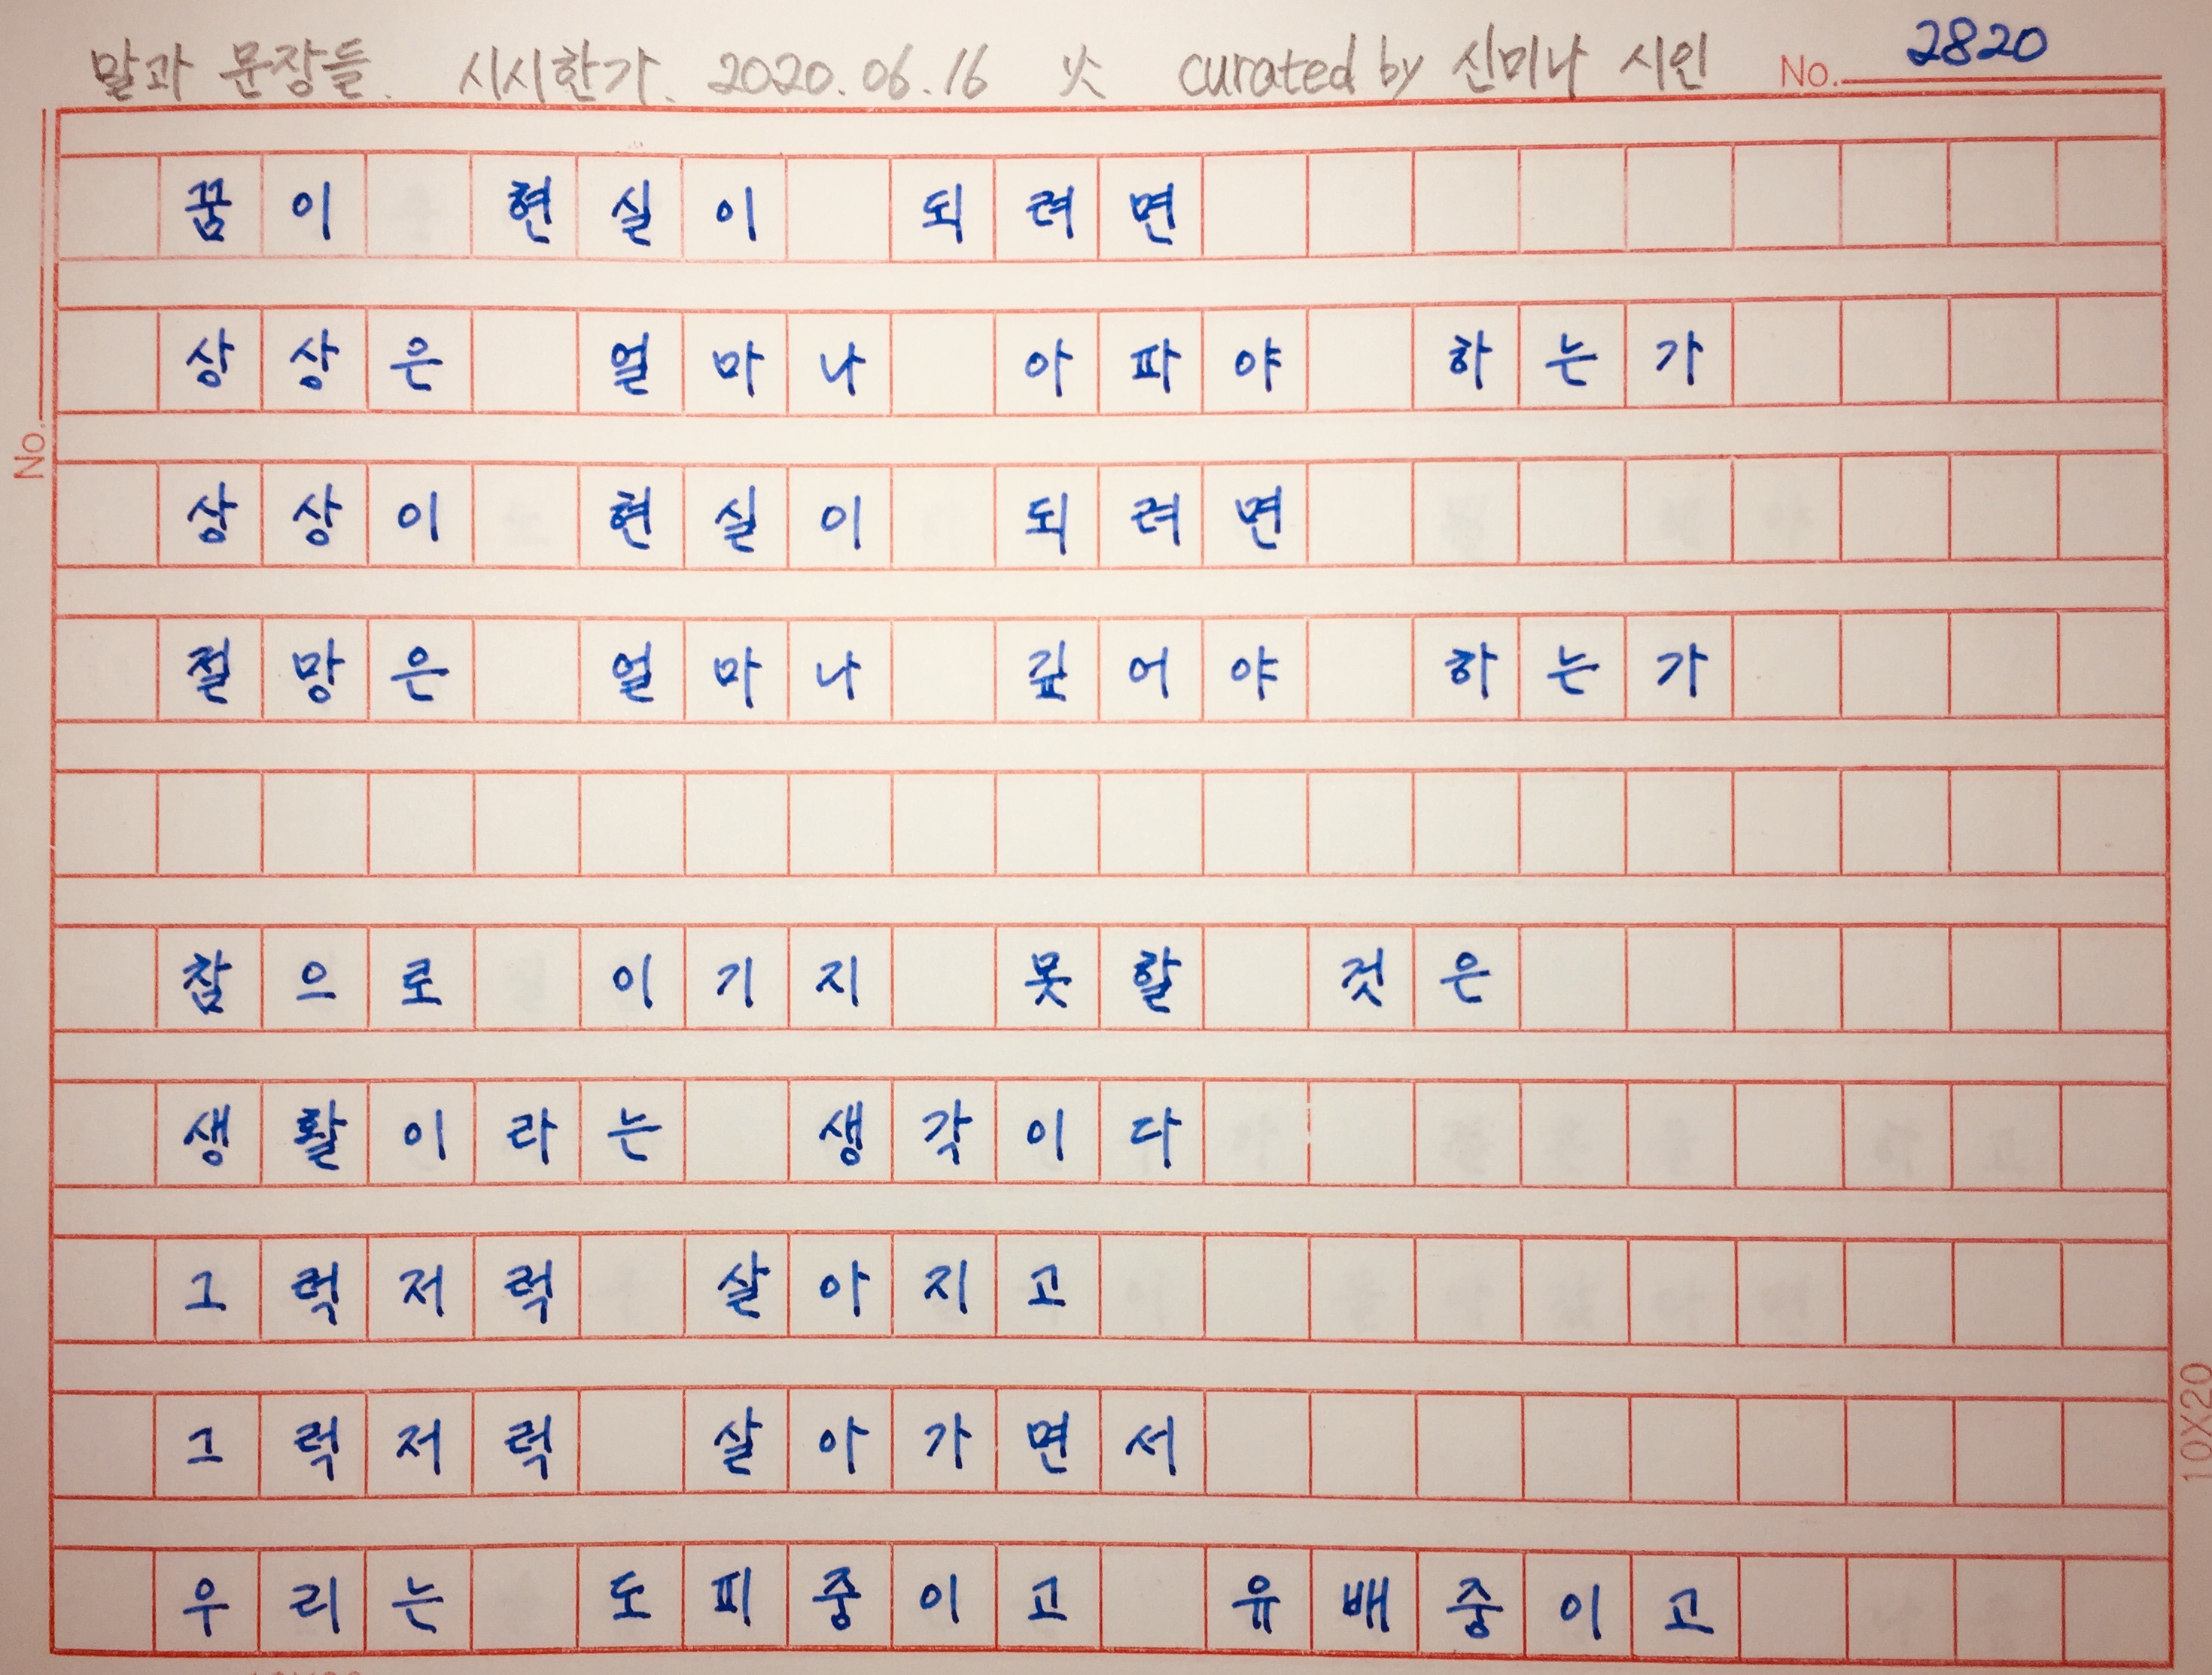 말과 문장들. 시시한가. 2020.06.16 火 curated by 신미나 시인 No. 2820
꿈이 현실이 되려면
상상은 얼마나 아파야 하는가
상상이 현실이 되려면
절망은 얼마나 깊어야 하는가
No.
참으로 이기지 못할 것은
생활이라는 생각이다
그럭저럭 살아지고
그럭저럭 살아가면서
우리는 도피중이고 유배중이고
10X20